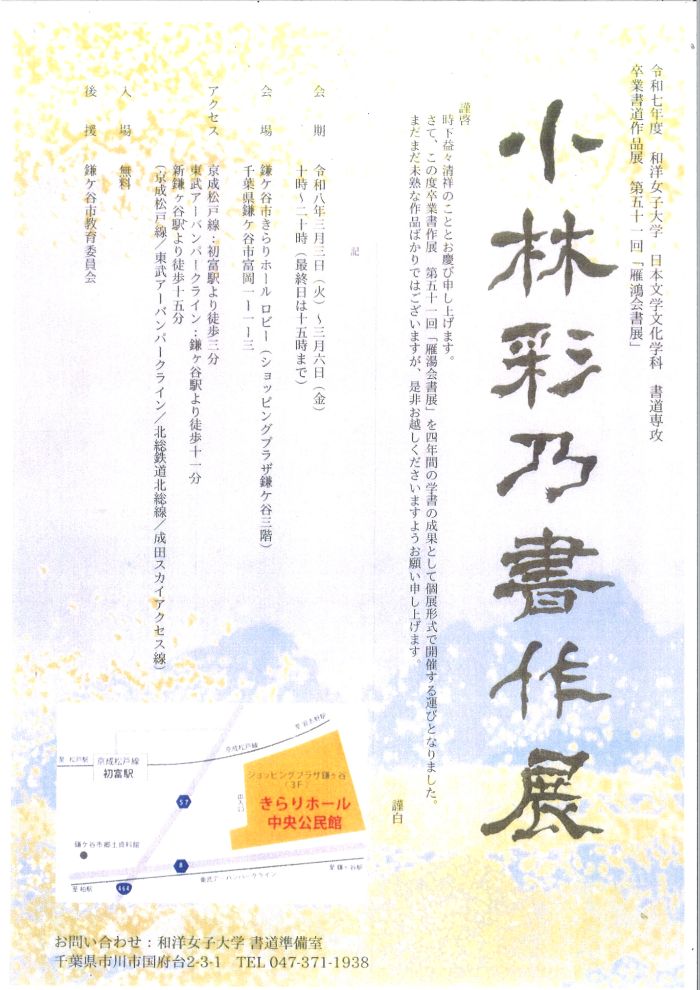 令和七年度　和洋女子大学　日本文学文化学科　書道専攻
卒業書道作品展　第五十一回「雁鴻会書展」
小林彩乃書作展
謹啓
時下益々清祥のこととお慶び申し上げます。
さて、この度卒業書作展　第五十一回「雁湯会書展」を四年間の学書の成果として個展形式で開催する運びとなりました。
まだまだ未熟な作品ばかりではございますが、是非お越しくださいますようお願い申し上げます。
謹白
記
会期　令和八年三月三日（火）～三月六日（金）
十時～二十時（最終日は十五時まで）
会場　鎌ケ谷市きらりホール ロビー（ショッピングプラザ鎌ケ谷三階）
千葉県鎌ケ谷市富岡一ー一ー三
アクセス　京成松戸線：初富駅より徒歩三分
東武アーバンパークライン：鎌ヶ谷駅より徒歩十一分
新鎌ヶ谷駅より徒歩十五分
（京成松戸線／東武アーバンパークライン／北総鉄道北総線／成田スカイアクセス線）
入場　無料
後援　鎌ケ谷市教育委員会
京成松戸線
至 松戸駅
京成松戸線
初富駅
ショッピングプラザ鎌ヶ谷
（3F）
きらりホール
中央公民館
出入口
57
鎌ケ谷市郷土資料館
8
至 鎌ヶ谷駅
東武アーバンパークライン
至 柏駅
464
お問い合わせ：和洋女子大学 書道準備室
千葉県市川市国府台2-3-1　TEL 047-371-1938